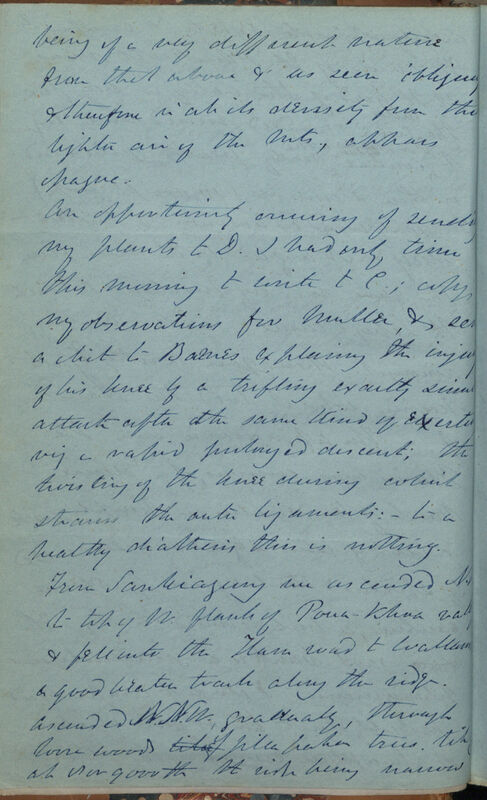 being of a very different nature
from that above & as seen obliquely
& therefore in all its density from the
lighter air of the Mts, appears
opaque.
An opportunity occurring of sending
my plants to D. I had only time
this morning to write to C.; copy
my observations for Muller, & send
a chit to Barnes explaining the injury
of his knee by a trifling exactly similar
attack after the same kind of exertion
viz a rapid prolonged descent; the
twisting of the knee during which
strains the outer ligaments: – to a
healthy diathesis this is nothing.
From Sankiagung we ascended N.
to top of W. flank of Powa-Khola valley
& fell into the Ilam road to Wallan
a good beaten track along the ridge.
ascended N.N.W. gradually, through
loose woods of trees. till
at the ridge being narrow